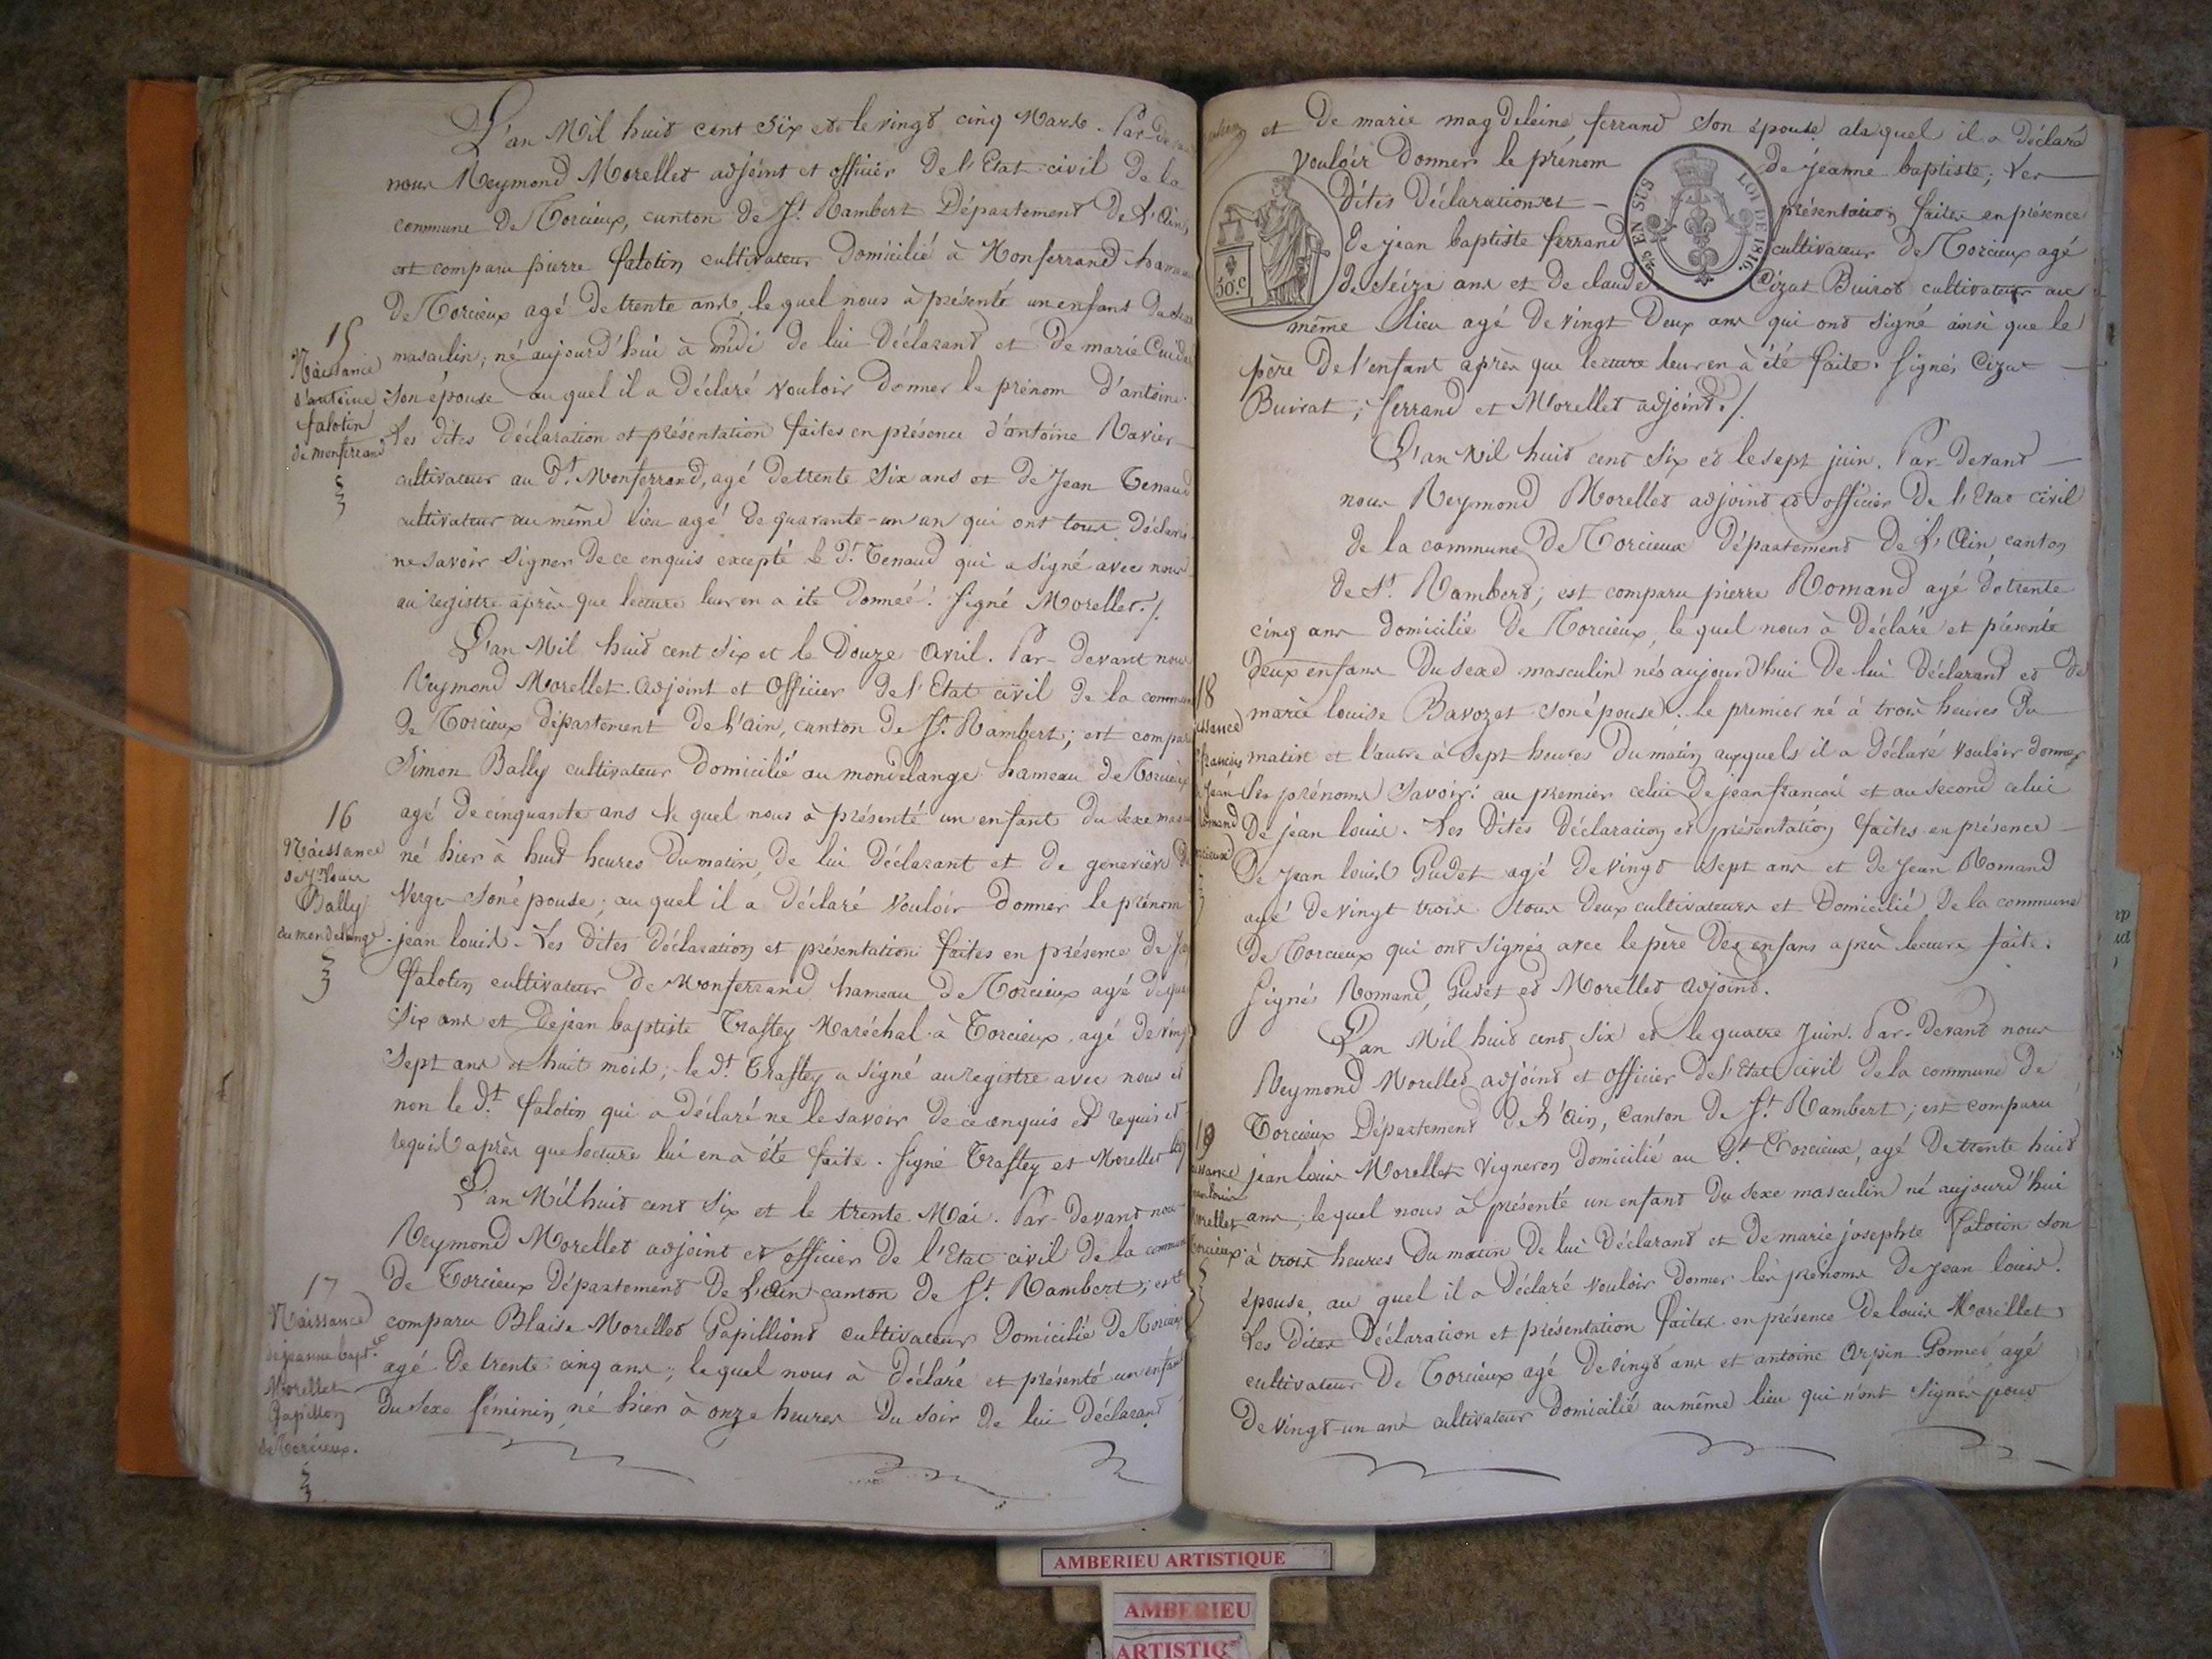 L'an Mil huit cent Six et le vingt cinq Mars. Par-de
nous Reymond Morellet adjoint et officier de l'Etat civil de la
commune de Torcieux, canton de St. Rambert Département de L'Ain,
est comparu pierre falotin cultivateur domicilié à Monferrand ham
de Torcieux agé de trente ans, le quel nous à présenté un enfant du sexe
15
masculin; né aujourd'hui à midi de lui Déclarant et de marie
Naissance
d'antoine
falotin
de monferrand
son épouse au quel il a déclaré vouloir donner le prénom d'antoine.
Les dites déclaration et présentation faites en présence d'antoine Ravier
cultivateur au dt. Monferrand, agé de trente Six ans et de Jean Tenaud
cultivateur au même lieu agé de quarante-un an qui ont tous déclaré
ne savoir signer de ce enquis excepté le dt. Tenaud qui a signé avec nous
au registre après que lecture leur en a été donnée. Signé Morellet./.
L'an Mil huit cent Six et le Douze avril. Par-devant nous
Reymond Morellet adjoint et Officier de l'Etat civil de la commune
de Torcieux département de l'ain, canton de St. Rambert; est compar
Simon Bally cultivateur domicilié au mondelange hameau de Torcieux
16
agé de cinquante ans le quel nous à présenté un enfant du sexe mas
Naissance
de Jn. Louis
Bally
du mondelange
né hier à huit heures du matin, de lui déclarant et de geneviève
Verger son épouse; au quel il a déclaré vouloir donner le prénom
jean louis. Les dites déclaration et présentation faites en présence de
falotin cultivateur de Monferrand hameau de Torcieux agé de
Six ans et de jean baptiste Traffey Maréchal à Torcieux, agé de ving
Sept ans et huit mois; le dt. Traffey a signé au registre avec nous et
non le dt. falotin qui a déclaré ne le savoir de ce enquis et requis et
requis après que lecture lui en à été faite. Signé Traffey et Morellet
L'an Mil huit cent Six et le trente Mai. Par-devant nous
Reymond Morellet adjoint et officier de l'Etat civil de la commune
17
de Torcieux Département de L'Ain canton de St. Rambert; est
Naissance
de jeanne bapte.
Morellet
Papillon
de Torcieux.
comparu Blaise Morellet Papilliont cultivateur domicilié de Torcieux
agé de trente cinq ans; le quel nous à déclaré et présenté un enfant
du sexe féminin, né hier à onze heures du soir de lui déclarant
et de marie magdeleine ferrand son épouse alaquel il a déclaré
vouloir donner le prénom de jeanne baptiste; Les
dites Déclaration et présentation faites en présence
de jean baptiste ferrand cultivateur de Torcieux agé
de seize ans et de claude Cizat Buirot cultivateur au
30.c
EN SUS
LOI DE 1816.
même lieu agé de vingt deux ans qui ont signé ainsi que le
père de l'enfant après que lecture leur en à été faite. Signés Cizat
Buirat; ferrand et Morellet adjoint./.
L'an Mil huit cent Six et le sept juin. Par-devant
nous Reymond Morellet adjoint et officier de l'Etat civil
de la commune de Torcieux département de L'Ain, canton
de St. Rambert; est comparu pierre Romand agé de trente
cinq ans domicilié de Torcieux, le quel nous à déclaré et présenté
deux enfans du sexe masculin nés aujourd'hui de lui déclarant et de
18
marie louise Bavozet son épouse. le premier né à trois heures du
matin et l'autre à sept heures du matin auxquels il a déclaré vouloir donner
les prénoms savoir: au premier celui de jean francois et au second celui
de jean louis. Les dites déclaration et présentation faites en présence
de Jean louis Gudet agé de vingt sept ans et de Jean Romand
agé de vingt trois tous deux cultivateurs et domicilié de la commune
de Torcieux qui ont signés avec le père des enfans après lecture faite.
Signés Romand, Gudet et Morellet adjoint.
L'an Mil huit cent Six et le quatre Juin. Par-devant nous
Reymond Morellet adjoint et officier de l'Etat civil de la commune de
Torcieux Département de L'ain, Canton de St. Rambert; est comparu
19
jean louis Morellet Vigneron domicilié au dt. Torcieux, agé de trente huit
ans; le quel nous à présenté un enfant du sexe masculin né aujourd'hui
à trois heures du matin de lui déclarant et de marie josephte falotin son
épouse, au quel il a déclaré vouloir donner les prénoms de jean louis.
Les dites Déclaration et présentation faites en présence de louis Morellet
cultivateur de Torcieux agé de vingt ans et antoine Arpin Gonnet agé
de vingt-un ans cultivateur domicilié au même lieu qui n'ont signés pour
AMBERIEU ARTISTIQUE
AMBERIEU
ARTISTIQ